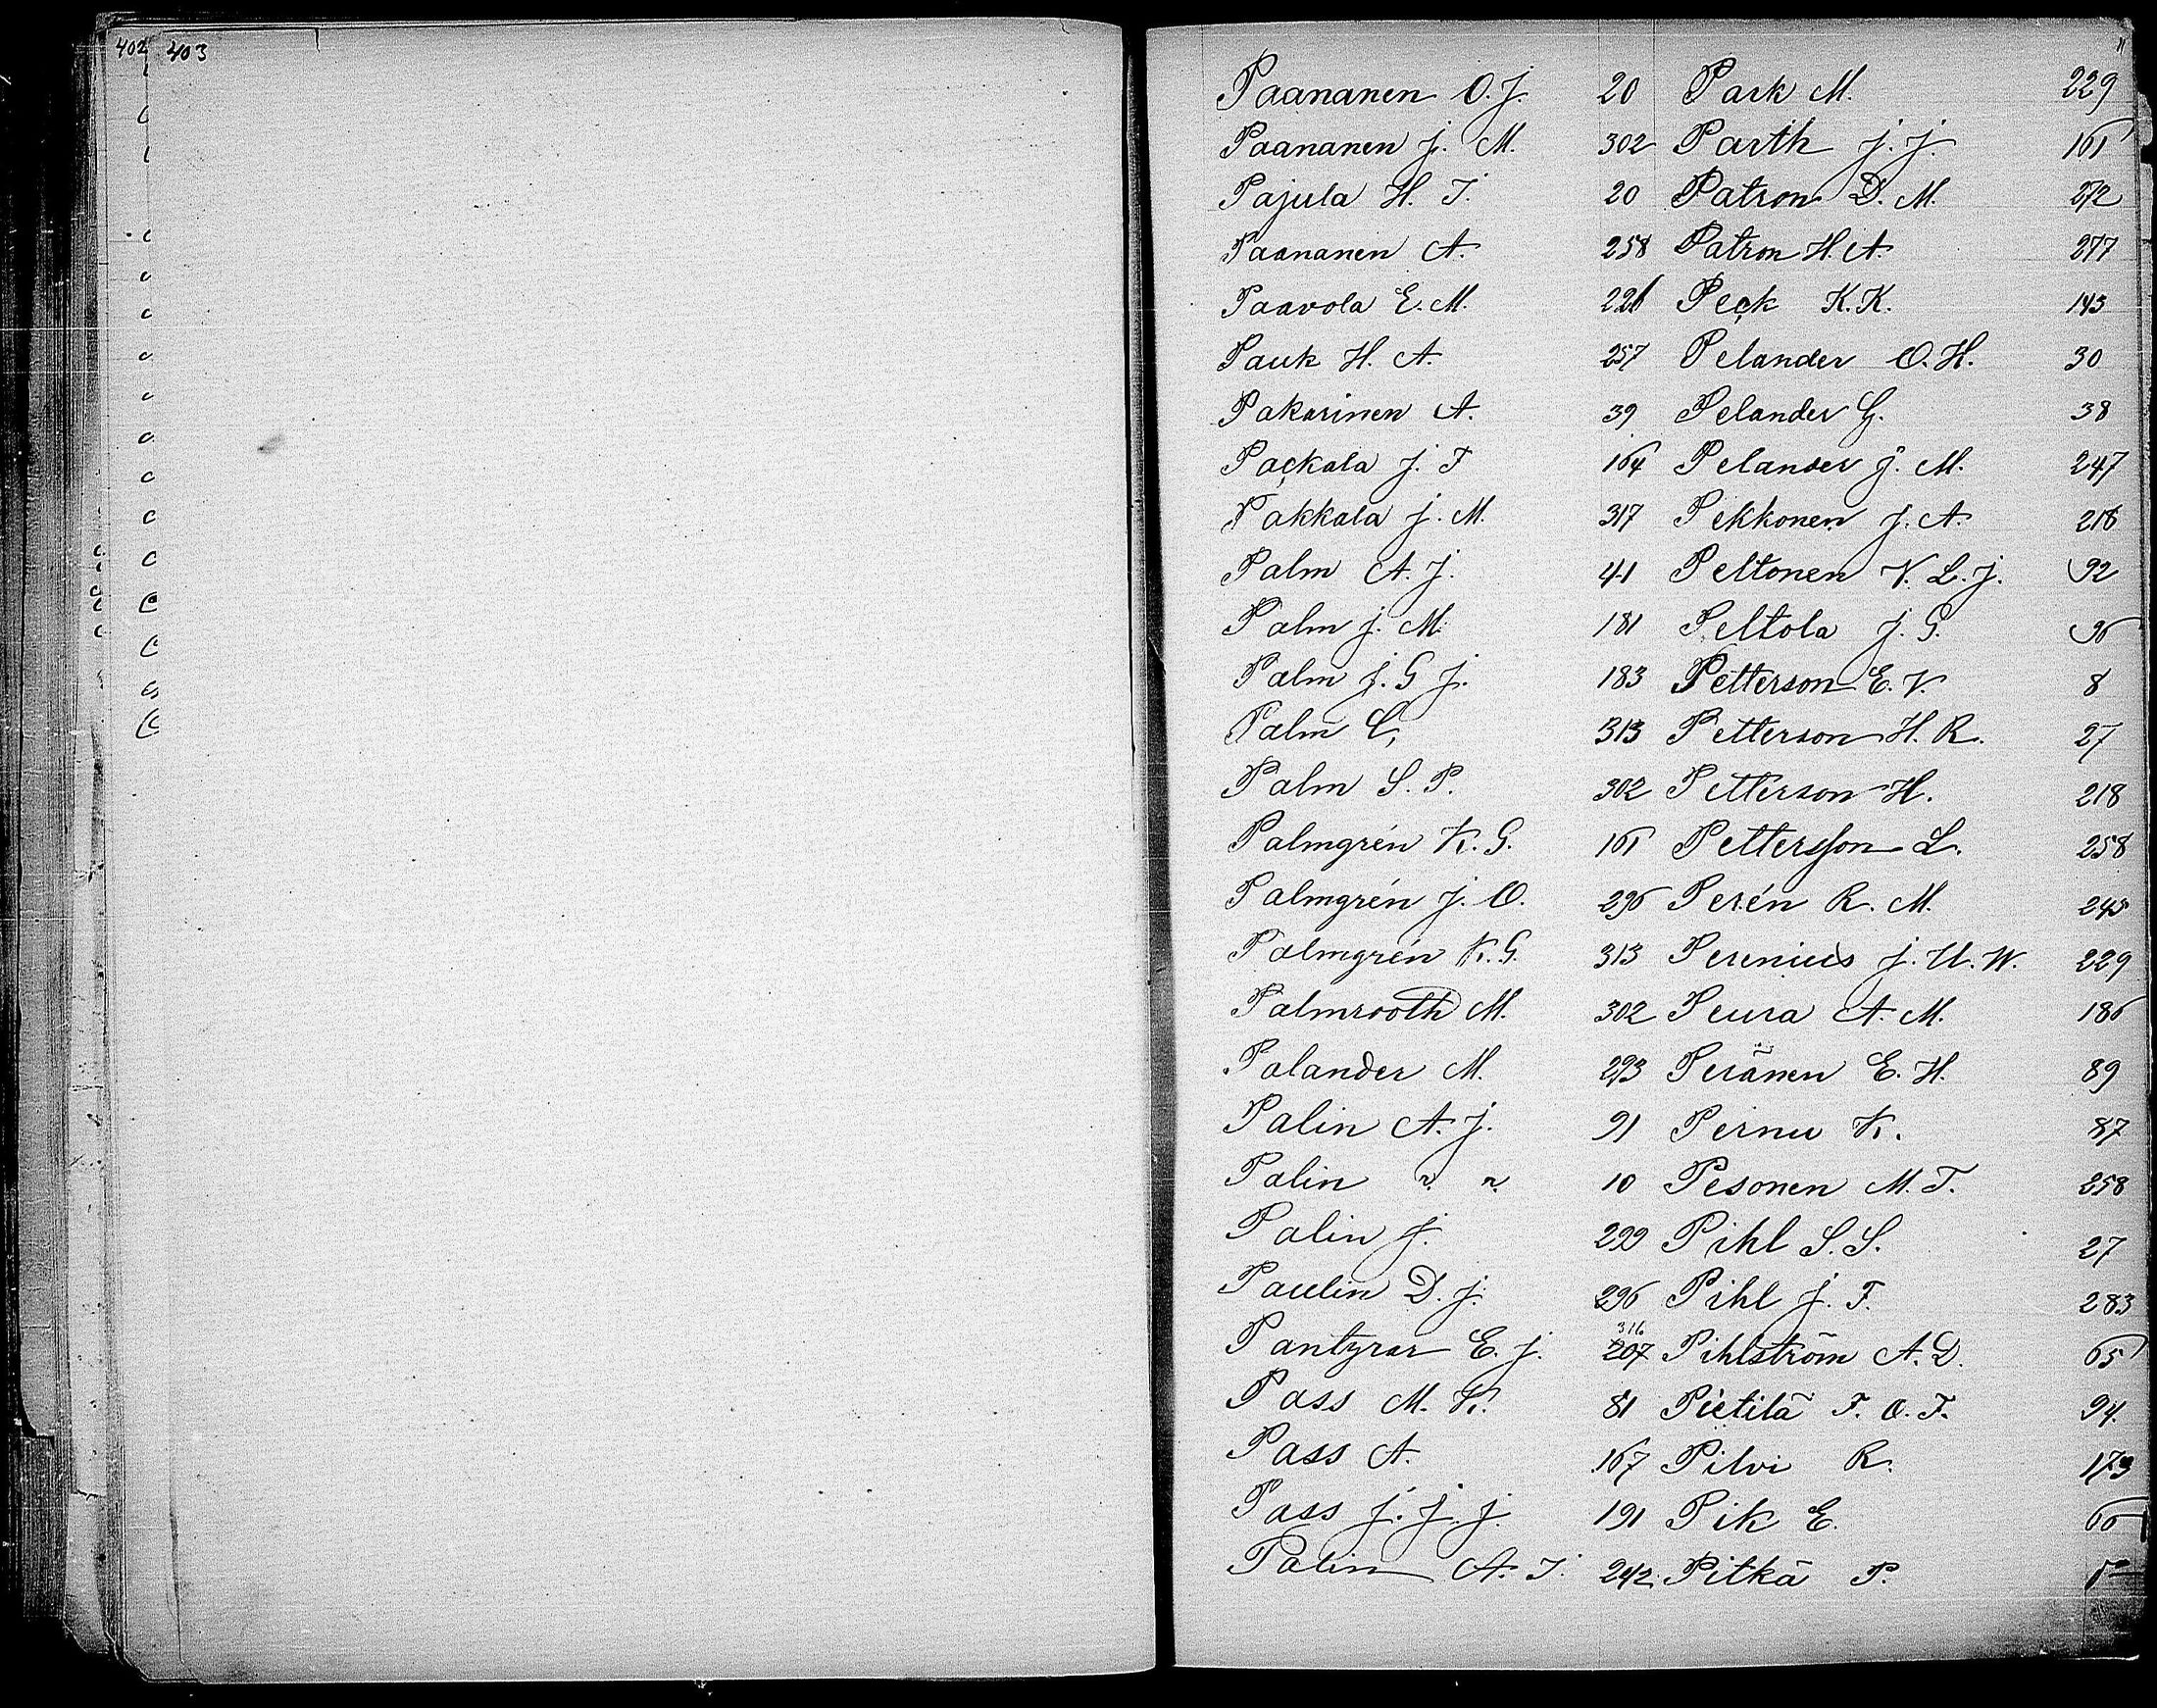 402 403
Paananen O. J. 20 Park M. 229
Paananen J. M. 302 Parth J. J. 161
Pajula H. J. 20 Patron D. M. 272
Paananen A. 258 Patron H. A. 277
Paavola E. M. 221 Peck K. K. 143
Pauk H. A. 257 Pelander O. H. 30
Pakarinen A. 39 Pelander G. 38
Packala J. F 164 Pelander J. M. 247
Pakkala J. M. 317 Pekkonen J. A. 218
Palm A. J. 41 Peltonen V. L. J. 92
Palm J. M. 181 Peltola J. G. 96
Palm J. G J. 183 Petterson E. V. 8
Palm C, 313 Petterson H. R. 27
Palm S. P. 302 Petterson H. 218
Palmgrén K. G. 161 Pettersson L. 258
Palmgrén J. O. 296 Perén R. M. 245
Palmgrén K. G. 313 Perenius J. U. W. 229
Palmrooth M. 302 Peura A. M. 186
Palander M. 293 Peränen E. H. 89
Palin A. J. 91 Pernu K. 87
Palin " " 10 Pesonen M. T. 258
Palin J. 299 Pihl S. S. 27
Paulin D. J. 296 Pihl J. F. 283
316
Pantyrar E. J. 207 Pihlström A. D. 65
Pass M. K. 81 Pietilä F. O. F. 94.
Pass A. 167 Pilvi R. 173
Pass J. J. J. 191 Pik E. 66
Palin A. J. 242 Pitkä P.